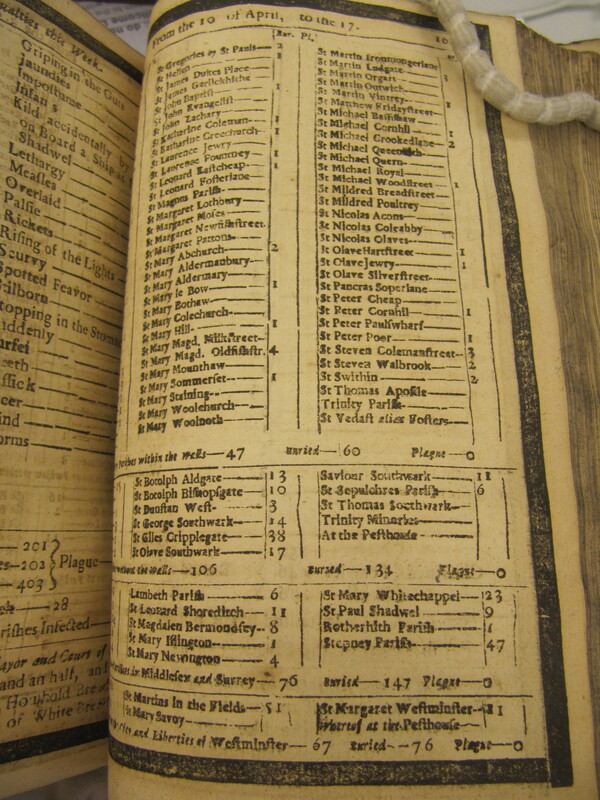 alties this Week.
Griping in the Guts
Jaundies
Imposthume
Infan s
Kild accidentally by
on Board a Ship at
Shadwel
Lethargy
Measles
Overlaid
Palsie
Rickets
Rising of the Lights
Scurvy
Spotted Feavor
Stilborn
topping in the Stom
uddenly
urfei
eeth
issick
cer
ind
orms
201
es-202 } Plague
403
28
rishes Infected
ayor and Court of
and an half, and
Houshold Bre
of White Bre
From the 10 of April, to the 17. 16
Bur. Pl.
St Gregories by St Pauls-- 2
St Hellen
St James Dukes Place 1
St James Garlickhithe
St John Baptist 1
St John Evangelist
St John Zachary
St Katharine Coleman-- 1
St Katharine Creechurch 1
St Laurence Jewry
St Laurence Pountney 1
St Leonard Eastcheap 1
St Leonard Fosterlane
St Magnus Parish
St Margaret Lothbury
St Margaret Moses
St Margaret Newfishstreet
St Margaret Pattons
St Mary Abchurch 2
St Mary Aldermanbury
St Mary Aldermary
St Mary le Bow 1
St Mary Bothaw
St Mary Colechurch
St Mary Hill 1
St Mary Magd. Milkstreet
St Mary Magd. Oldfishstr. 4
St Mary Mounthaw
St Mary Sommerset 1
St Mary Staining
St Mary Woolchurch
St Mary Woolnoth
St Martin Ironmongerlane
St Martin Ludgate 3
St Martin Orgars
St Martin Outwich
St Martin Vintrey
St Matthew Fridaystreet
St Michael Bassishaw
St Michael Cornhil 1
St Michael Crookedlane 2
St Michael Queenhith
St Michael Quern
St Michael Royal
St Michael Woodstreet 1
St Mildred Breadstreet
St Mildred Poultrey
St Nicolas Acons
St Nicolas Coleabby
St Nicolas Olaves
St Olave Hartstreet 1
St Olave Jewry 1
St Olave Silverstreet
St Pancras Soperlane
St Peter Cheap
St Peter Cornhil 1
St Peter Paulswharf
St Peter Poor 1
St Steven Colemanstreet 3
St Steven Walbrook 2
St Swithin 2
St Thomas Apostle
Trinity Parish
St Vedast alias Fosters
Parishes within the Walls 47 Buried 60 Plague 0
St Botolph Aldgate 13
St Botolph Bishopsgate 10
St Dunstan West 3
St George Southwark 14
St Giles Cripplegate 38
St Olave Southwark 17
Saviour Southwark 11
St Sepulchres Parish 6
St Thomas Southwark
Trinity Minories
At the Pesthouse
without the Walls 106 Buried 134 Plague 0
Lambeth Parish 6
St Leonard Shoreditch 11
St Magdalen Bermondsey 8
St Mary Islington 1
St Mary Newington 4
St Mary Whitechappel 23
St Paul Shadwel 9
Rotherhith Parish 1
Stepney Parish 47
in Middlesex and Surrey 76 Buried 147 Plague 0
St Martins In the Fields 51
St Mary Savoy
St Margaret Westminster 21
at the Pesthouse
and Liberties of Westminster 67 Buried 76 Plague 0